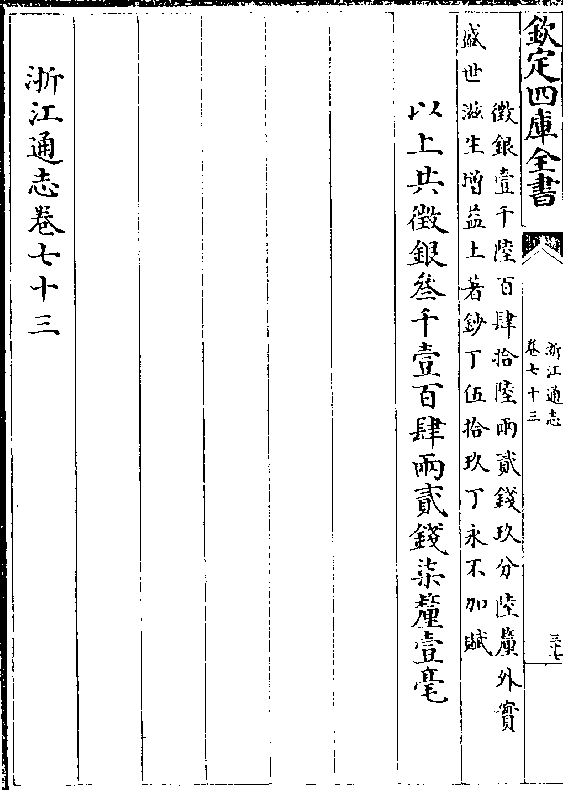 欽定四庫全書
浙江通志
卷七十三
三十七
徵銀壹千陸百肆拾陸兩貳錢玖分陸釐外實
盛世滋生增益土著鈔丁伍拾玖丁永不加賦
以上共徵銀叁千壹百肆兩貳錢柒釐壹毫
浙江通志卷七十三